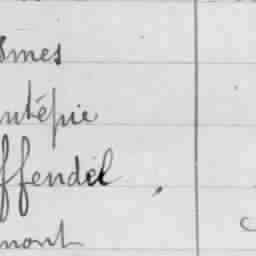 smes
ntépie
ffendel
mont